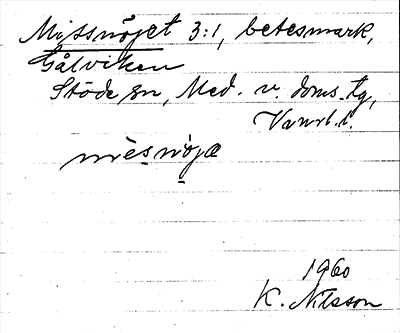 Missnöjet 3:1, betesmark,
Gålviken
Stöde sn, Med. v. doms. tg,
Vanrl. l.
mìe̠sno̠jæ
1960
K. Nilsson